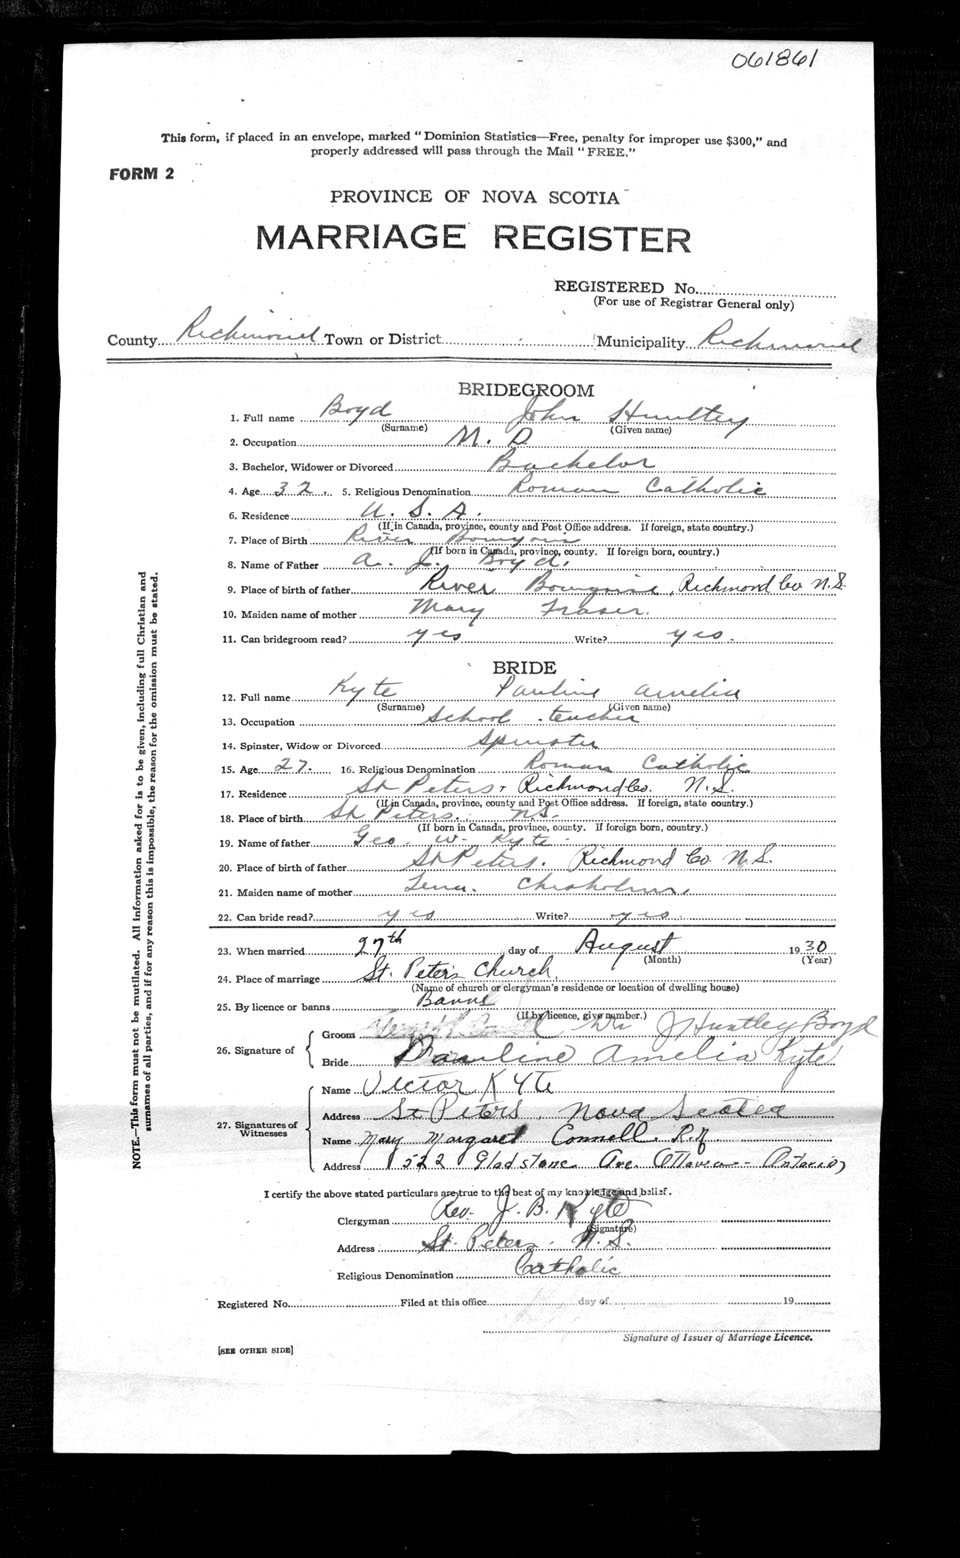 061861
This form, if placed in an envelope, marked "Dominion Statistics—Free, penalty for improper use $300," and
properly addressed will pass through the Mail "FREE."
FORM 2
PROVINCE OF NOVA SCOTIA
MARRIAGE REGISTER
REGISTERED No.
(For use of Registrar General only)
County Richmond Town or District Municipality Richmond
BRIDEGROOM
1. Full name Boyd John Huntley
(Surname) (Given name)
2. Occupation M. D
3. Bachelor, Widower or Divorced Bachelor
4. Age 32. 5. Religious Denomination Roman Catholic
6. Residence U. S. A.
(If in Canada, province, county and Post Office address. If foreign, state country.)
7. Place of Birth River
(If born in Canada, province, county. If foreign born, country.)
8. Name of Father A. J. Boyd.
9. Place of birth of father River Richmond Co N.S.
10. Maiden name of mother Mary Fraser.
11. Can bridegroom read? yes Write? yes.
BRIDE
12. Full name Kyte Pauline Amelia
(Surname) (Given name)
13. Occupation School teacher
14. Spinster, Widow or Divorced Spinster
15. Age 27. 16. Religious Denomination Roman Catholic
17. Residence St Peters Richmond Co. N.S.
(If in Canada, province, county and Post Office address. If foreign, state country.)
18. Place of birth St Peters. NS.
(If born in Canada, province, county. If foreign born, country.)
19. Name of father Geo. W. Kyte
20. Place of birth of father St Peters. Richmond Co N.S.
21. Maiden name of mother Chisholm
22. Can bride read? yes Write? yes.
23. When married 27th day of August 1930
(Month) (Year)
24. Place of marriage St. Peter's Church
(Name of church or clergyman's residence or location of dwelling house)
25. By licence or banns Banns
(If by licence, give number.)
26. Signature of
Groom J Huntley Boyd
Bride Pauline Amelia Kyte
27. Signatures of Witnesses
Name Victor Kyte
Address St Peters, Nova Scotia
Name Mary Margaret Connell. R.N
Address 522 Gladstone Ave. Ottawa - Ontario
I certify the above stated particulars are true to the best of my knowledge and belief.
Clergyman Rev. J. B. Kyte
(Signature)
Address St. Peters. N.S.
Religious Denomination Catholic
Registered No. Filed at this office day of 19
Signature of Issuer of Marriage Licence.
[SEE OTHER SIDE]
NOTE.—This form must not be mutilated. All Information asked for is to be given, including full Christian and
surnames of all parties, and if for any reason this is impossible, the reason for the omission must be stated.